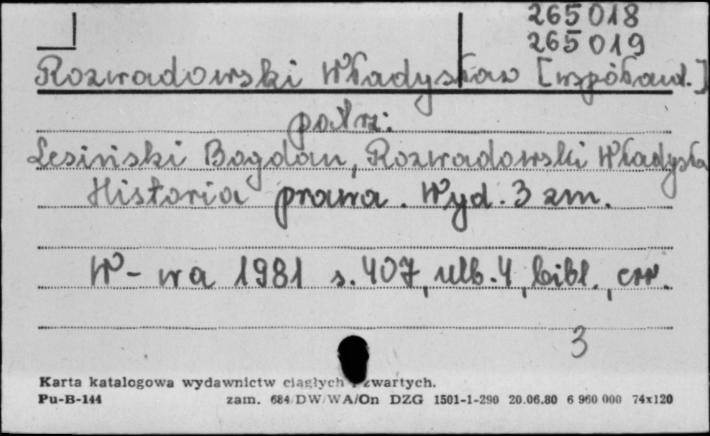 265018
265019
Rozwadowski Władysław [współaut.]
patrz:
Lesiński Bogdan, Rozwadowski Władysła
Historia prawa. Wyd. 3 zm.
W-wa 1981 s. 407, ulb. 4, bibl.,
3
Karta katalogowa wydawnictw ciągłych i zwartych.
Pu-B-144 zam. 684/DW/WA/On DZG 1501-1-290 20.06.80 6 960 000 74x120